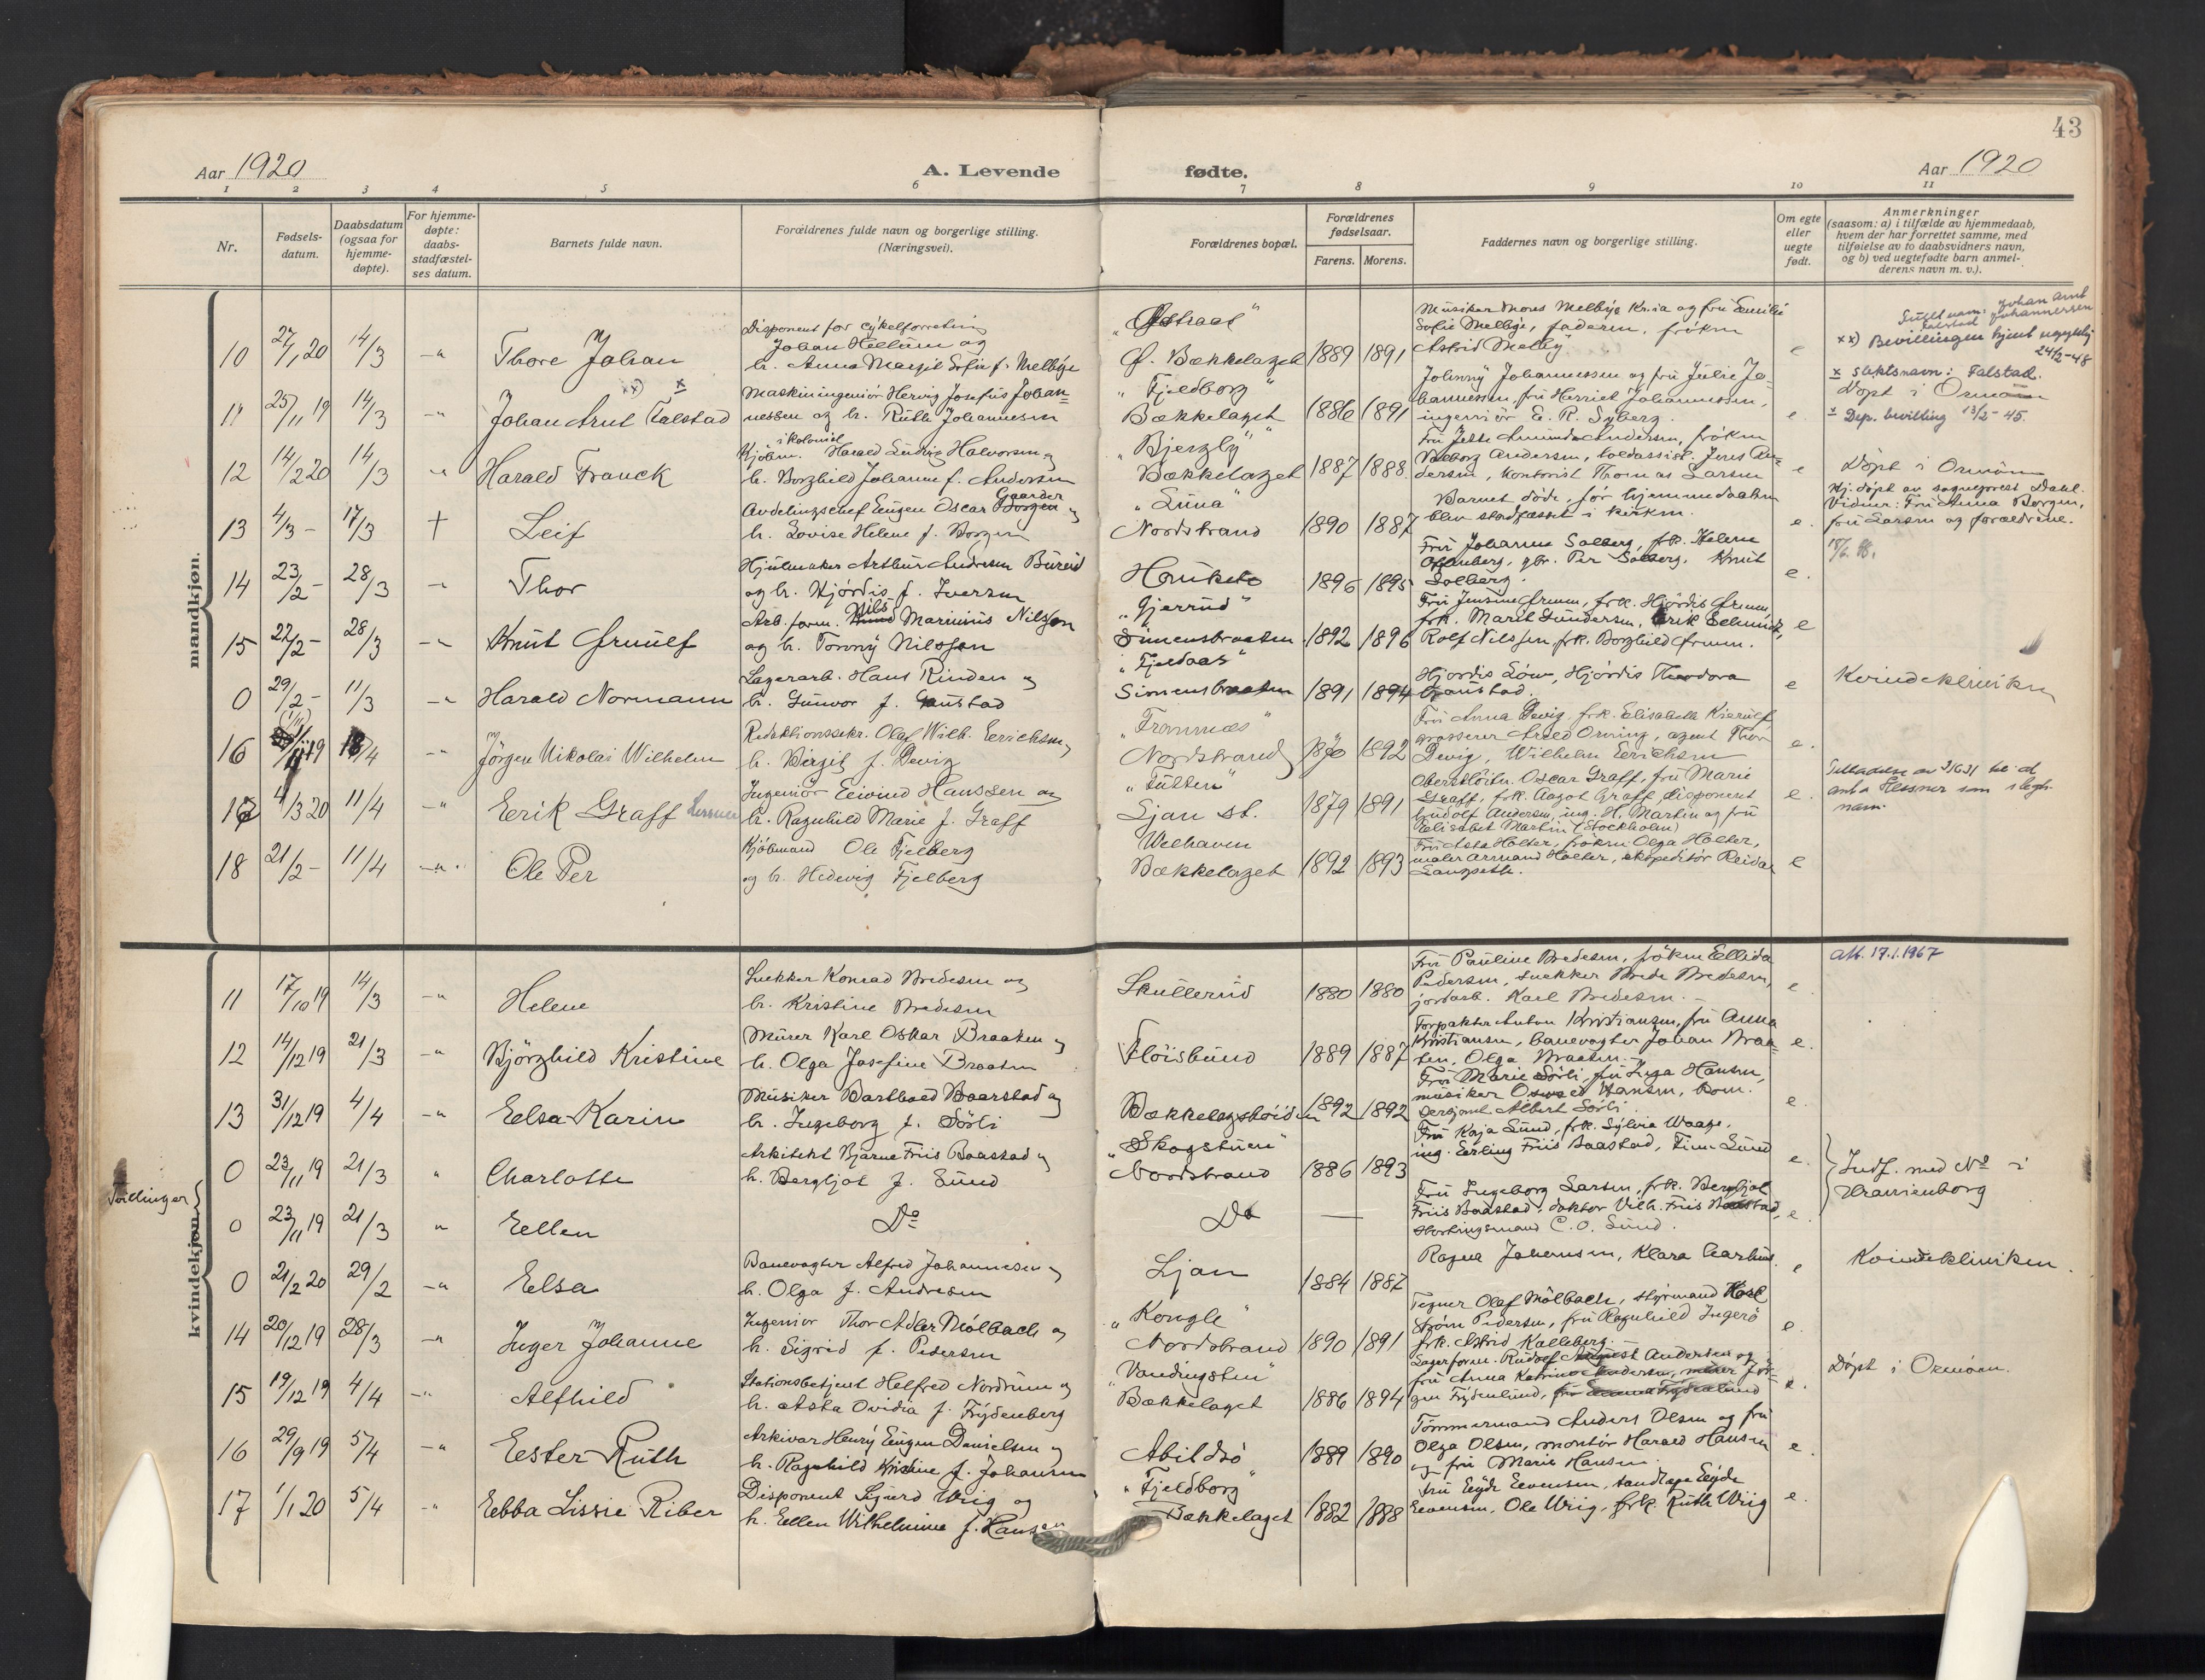 43
Aar 1920
A. Levende fødte.
Aar 1920
1 2 3 4 5 6 7 8 9 10 11
Nr.
Fødsels-
datum.
Daabsdatum
(ogsaa for
hjemme-
døpte).
For hjemme-
døpte:
daabs-
stadfæstel-
ses datum.
Barnets fulde navn.
Forældrenes fulde navn og borgerlige stilling.
(Næringsvei).
Forældrenes bopæl.
Forældrenes
fødselsaar.
Farens. Morens.
Faddernes navn og borgerlige stilling.
Om egte
eller
uegte
født.
Anmerkninger
(saasom: a) i tilfælde av hjemmedaab,
hvem der har forrettet samme, med
tilføielse av to daabsvidners navn,
og b) ved uegtefødte barn anmel-
derens navn m. v.).
mandkjøn.
10 27/1 20 14/3 -"- Thore Johan
Disponent for cykelforretning
Johan Hellum og
h. Anna Margit Sofie f. Melbye
Ø. Bækkelaget 1889 1891
Musiker Mores Melbye Kr.ia og fru Emilie
Sofie Melbye, faderen, frøken
Astrid Melby
e
Fullt navn: Johan Arnt
Falstad Johannessen
xx) Bevillingen kjent ugyldig
24/2-48
11 25/11 19 14/3 -"- Johan Arnt Falstad xx) x
Maskiningeniör Herving Josefus Johan-
nessen og h. Ruth Johannesen
"Fjeldborg"
Bækkelaget 1886 1891
Johnny Johannessen og fru Julie Jo-
hannessen, fru Harriet Johannessen,
ingeniör E. R. Syberg.
e.
x Slektsnavn: Falstad.
Døpt i Ormøen
x Dep. bevilling 13/2-45.
12 14/2 20 14/3 -"- Harald Franck
Kjöbm. Harald Ludvig Halvorsen og
h. Borghild Johanne f. Andersen
"Bjerzly"
Bækkelaget 1887 1888.
Valborg Andersen, toldassist. Jens An-
dersen, kontorist Thomas Larsen
e
Döpt i Ormöen
13 4/3 - 17/3 † Leif
Avdelingschef Eugen Oscar Borgen og
Gaarder
h. Lovise Helene f. Borgen
"Luna"
Nordstrand 1890 1887
Barnet döde, för hjemmedaaben
blev stadfæstet i kirken.
e.
Hj. döpt av sogneprest Dahl.
Vidner: Fru Anna Borgen,
fru Larsen og forældrene.
14 23/2 - 28/3 -"- Thor
Hjulmaker Arthur Andresen Bureid
og h. Hjördis f. Iversen
Hauketo 1896 1895
Fru Johanne Solberg, frk. Helene
Offenberg, gbr. Per Solberg. Knut
Solberg.
e.
15 22/2 - 28/3 -"- Knut Grunulf
Arb. form. Nils Marinius Nilssen
og h. Tonny Nilssen
"Gjerrud"
Simensbraaten 1892 1896
Rolf Nilssen, frk. Borghild
e
0 29/2 - 11/3 -"- Harald Normann
Lagerarb. Hans Rinden og
h. Gunvor f. Gaustad
"Fjeldaas"
Simensbraaten 1891 1894
Hjördis Löw, Hjördis Theodora
Gaustad.
e
Kvindekliniken
16 18/4 -"- Jörgen Nikolai Wilhelm
Redaktionssekr. Olaf Wilh. Erichsen og
h. Birgit f. Devig
"Tromnæs"
Nordstrand 1892
Fru Anna Devig, frk. Elisabeth Kierulf
grosserer Arild Orning, agent Thor
Devig, Wilhelm Erichsen
e.
17 4/3 20 11/4 -"- Eerik Graff
Ingeniör Eivind Hanssen og
h. Ragnhild Marie f. Graff
"Tutten"
Ljan st. 1879 1891
Oberstlöitn. Oscar Graff, fru Marie
Graff, frk. Aagot Graff, disponent
Rudolf Andersen, ing. H. Martin og fru
Elisabet Martin (Stockholm)
e.
18 21/2 - 11/4 -"- Ole Per
Kjöbmand Ole Fjelberg
og h. Hedevig Fjelberg
Welhaven
Bækkelaget 1892 1893
Fru Asta Holter, fröken Olga Holter,
maler Armand Holter, ekspeditör Reidar
Langseth.
e
kvindekjøn.
11 17/10 19 14/3 -"- Helene
Snekker Konrad Bredesen og
h. Kristine Bredesen
Skullerud 1880 1880
Fru Pauline Bredesen, fröken Ellida
Pedersen, snekker Brede Bredesen,
jordarb. Karl Bredesen. -
e.
att. 17.1.1967
12 14/12 19 21/3 -"- Björghild Kristine
Murer Karl Oskar Braaten og
h. Olga Josefine Braaten
Flöisbund 1889 1887
Forpakter Anton Kristiansen, fru Anna
Kristiansen, banevogter Johan Braa-
ten, Olga Braaten.-
e.
13 31/12 19 4/4 -"- Eelsa Karin
Musiker Barthold Baarstad og
h. Ingeborg f. Sörli
Bækkelagshöiden 1892 1892
Fru Marie Sörli, fru Inga Hansen,
musiker Oswald Hansen, kom.
sersjant Albert Sörli.
e.
Tvillinger
0 23/11 19 21/3 " Charlotte
Arkitekt Bjarne Friis Baastad og
h. Bergljot f. Sund
"Skogstuen"
Nordstrand 1886 1893
Fru Kaja Sund, frk. Sylvia Waage,
ing. Eerling Friis Baastad, Finn Sund
e.
Indf. med No i
Uranienborg
0 23/11 19 21/3 " Eellen
Do
Do
Fru Ingeborg Larsen, frk. Bergljot
Friis Baastad, doktor Vilh. Friis Baastad,
Stortingsmand C. O. Sund.
e.
0 21/2 20 29/2 -"- Eelsa
Banevogter Alfred Johannesen og
h. Olga f. Andresen
Ljan 1884 1887
Ragna Johansen, Klara
e
Kvindekliniken.
14 20/12 19 28/3 -"- Inger Johanne
Ingeniör Thor Adler Mölbach og
h. Sigrid f. Pedersen
"Kongle"
Nordstrand 1890 1891
Tegner Olaf Mölbach, styrmand Karl
Ström Pedersen, fru Ragnhild Ingerö
frk. Astrid Kalleberg.-
e.
15 19/12 19 4/4 -"- Alfhild
Stationsbetjent Helfred Nordrum og
h. Asta Ovidia f. Frydenberg
Bækkelaget 1886 1894
Lagerform. Rudolf August Andersen og
fru Anna Katrine Andersen, murer Jör-
gen Frydenlund, fru Emma Frydenlund
e.
Döpt i Ormöen.
16 29/9 19 5/4 -"- Eester Ruth
Arkivar Henry Eugen Danielsen og
h. Ragnhild Kristine f. Johansen
Abildsö 1889 1890
Tömmermand Anders Olsen og fru
Olga Olsen, montör Harald Hansen
og fru Marie Hansen.
e.
17 1/1 20 5/4 -"- Eebba Lissie Riber
Disponent Sigurd Wiig og
h. Eellen Wilhelmine f. Hansen
"Fjeldborg"
Bækkelaget 1882 1888
Eevensen, Ole Wiig, frk. Ruth Wiig
e.